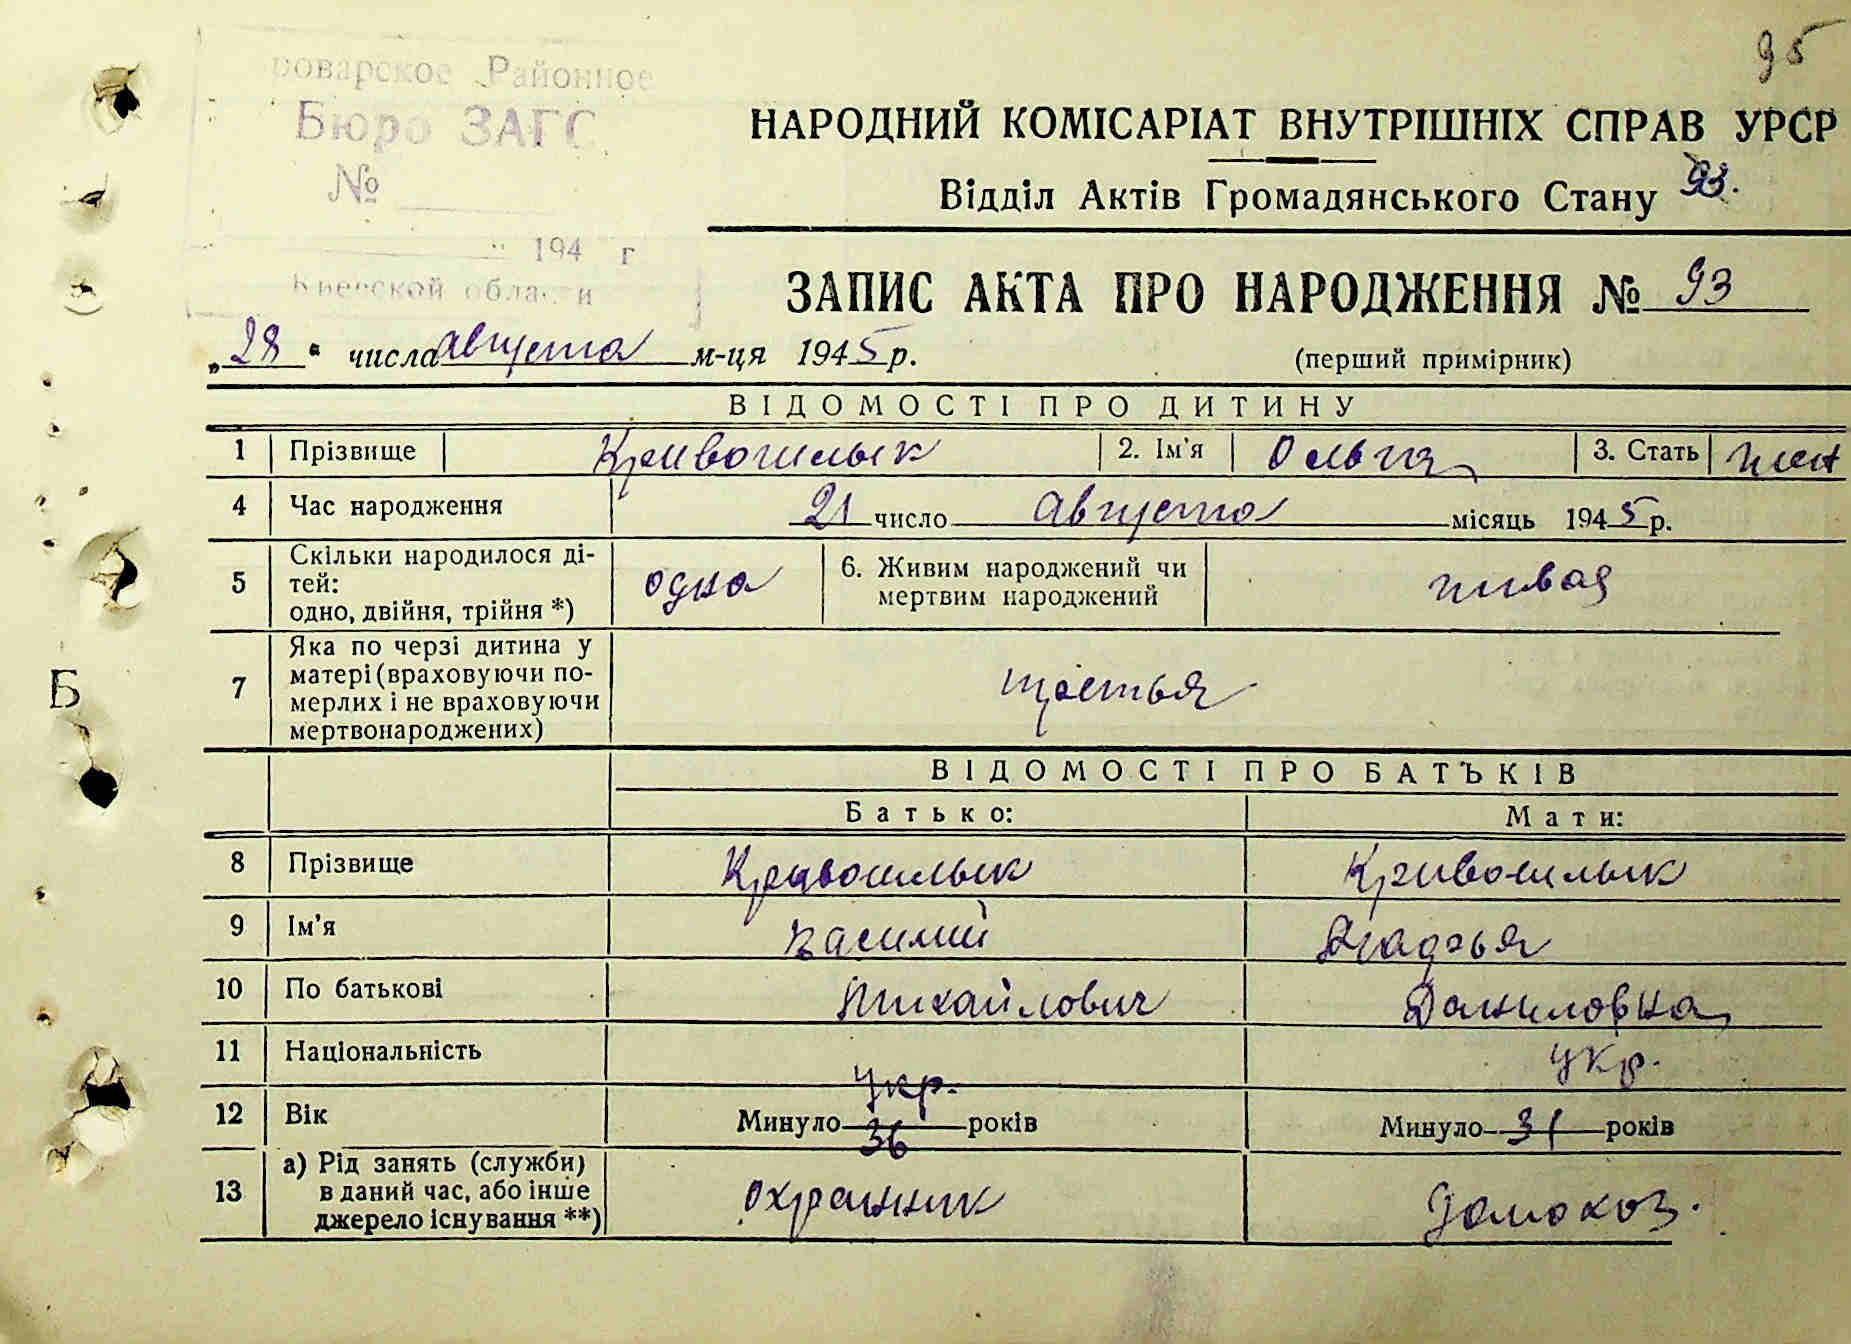 95
роварское Районное
Бюро ЗАГС
№
" 194 г
Киевской области
НАРОДНИЙ КОМІСАРІАТ ВНУТРІШНІХ СПРАВ УРСР
Відділ Актів Громадянського Стану 93.
ЗАПИС АКТА ПРО НАРОДЖЕННЯ № 93
„28" числа августа м-ця 1945 р.
(перший примірник)
ВІДОМОСТІ ПРО ДИТИНУ
1 Прізвище Кривошлык 2. Ім'я Ольга 3. Стать жен
4 Час народження 21 число августа місяць 1945 р.
5 Скільки народилося ді-
тей:
одно, двійня, трійня *) одна 6. Живим народжений чи
мертвим народжений живая
7 Яка по черзі дитина у
матері (враховуючи по-
мерлих і не враховуючи
мертвонароджених) третья
Б
ВІДОМОСТІ ПРО БАТЬКІВ
Батько: Мати:
8 Прізвище Кривошлык Кривошлык
9 Ім'я Василий
10 По батькові Михайлович Даниловна
11 Національність укр. укр.
12 Вік Минуло 36 років Минуло 31 років
13 а) Рід занять (служби)
в даний час, або інше
джерело існування **) охранник домохоз.